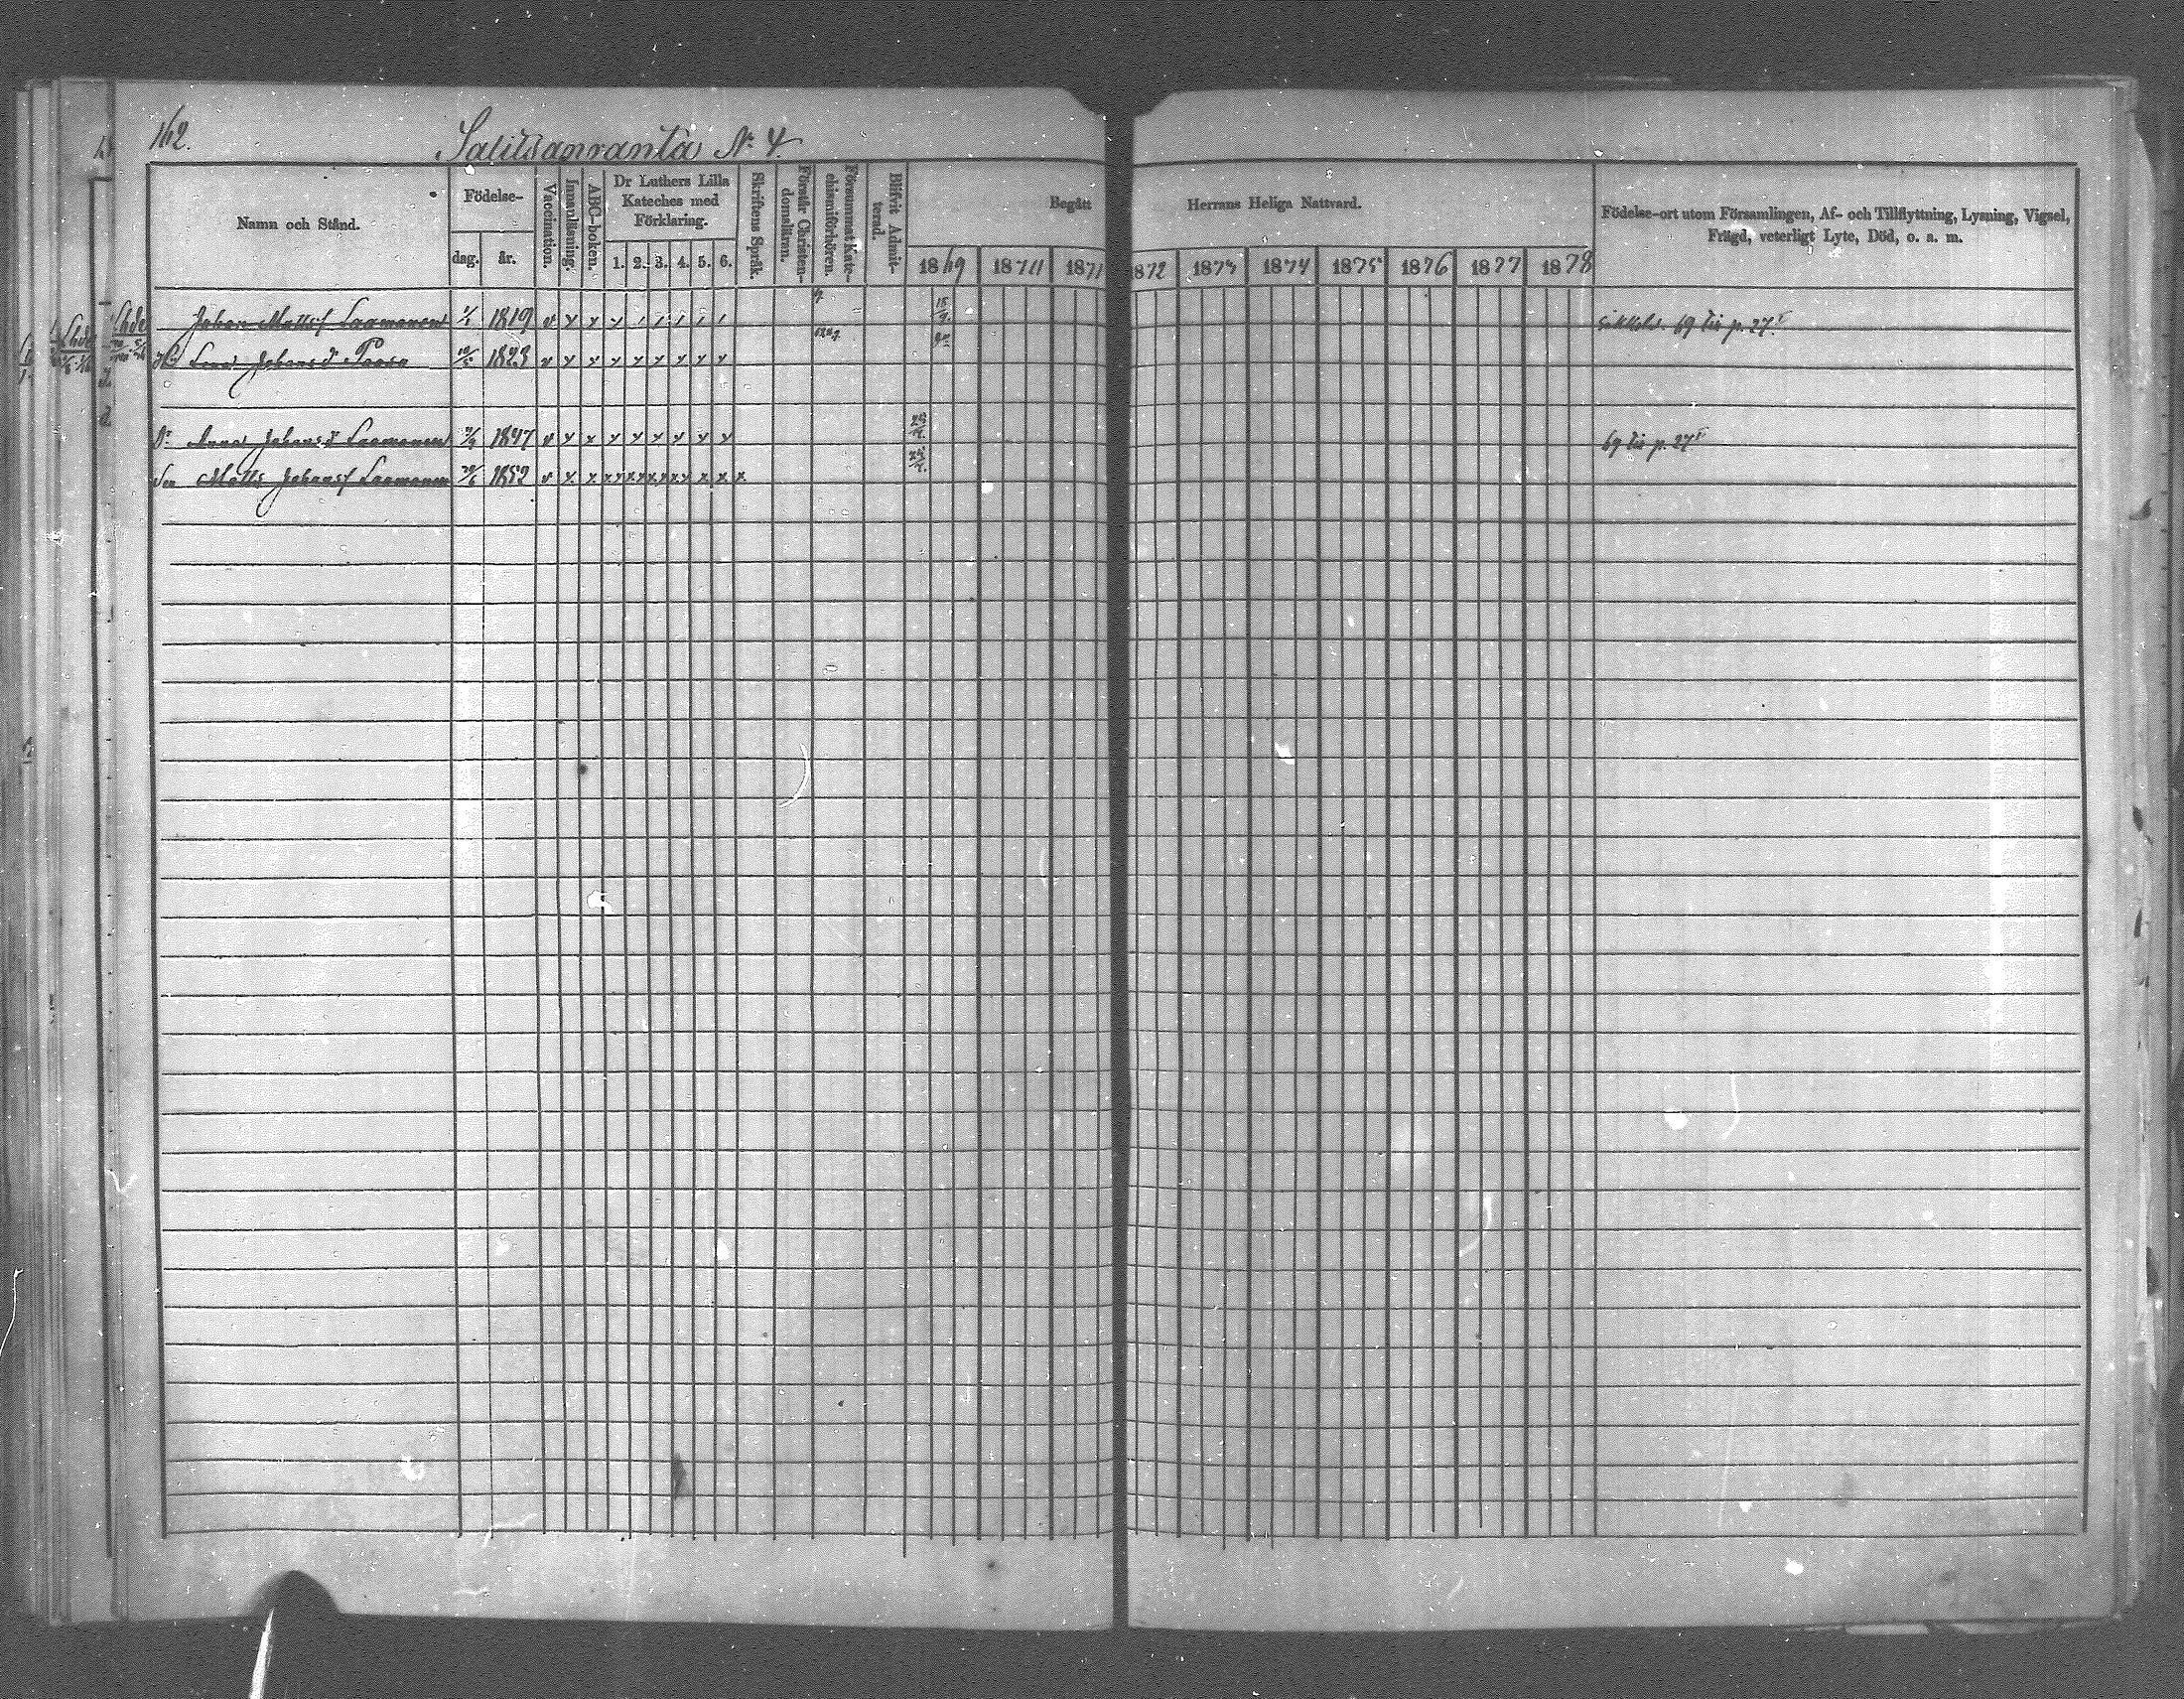 162.
Salitsanranta No 4.
Namn och Stånd.
Födelse-
dag.
år.
Vaccination.
Innanläsning.
ABC-boken.
Dr Luthers Lilla Kateches med Förklaring.
1. 2. 3. 4. 5. 6.
Skriftens Språk.
Förstår Christendomsläran.
Försummat katechismiförhören.
Blifvit Admitterad.
Begått
Herrans Heliga Nattvard.
1869 1870 1871 1872 1873 1874 1875 1876 1877 1878
Födelse-ort utom Församlingen, Af- och Tillflyttning, Lysning, Vigsel,
Frägd, veterligt Lyte, Död, o. a. m.
Johan Mattsf Laamanen 1819 69 p. 27
Lena Johansd Paaso 1823
Dr Anna Johansd Laamanen 1847 69 p. 27
Son Matts Johansf Laamanen 1852